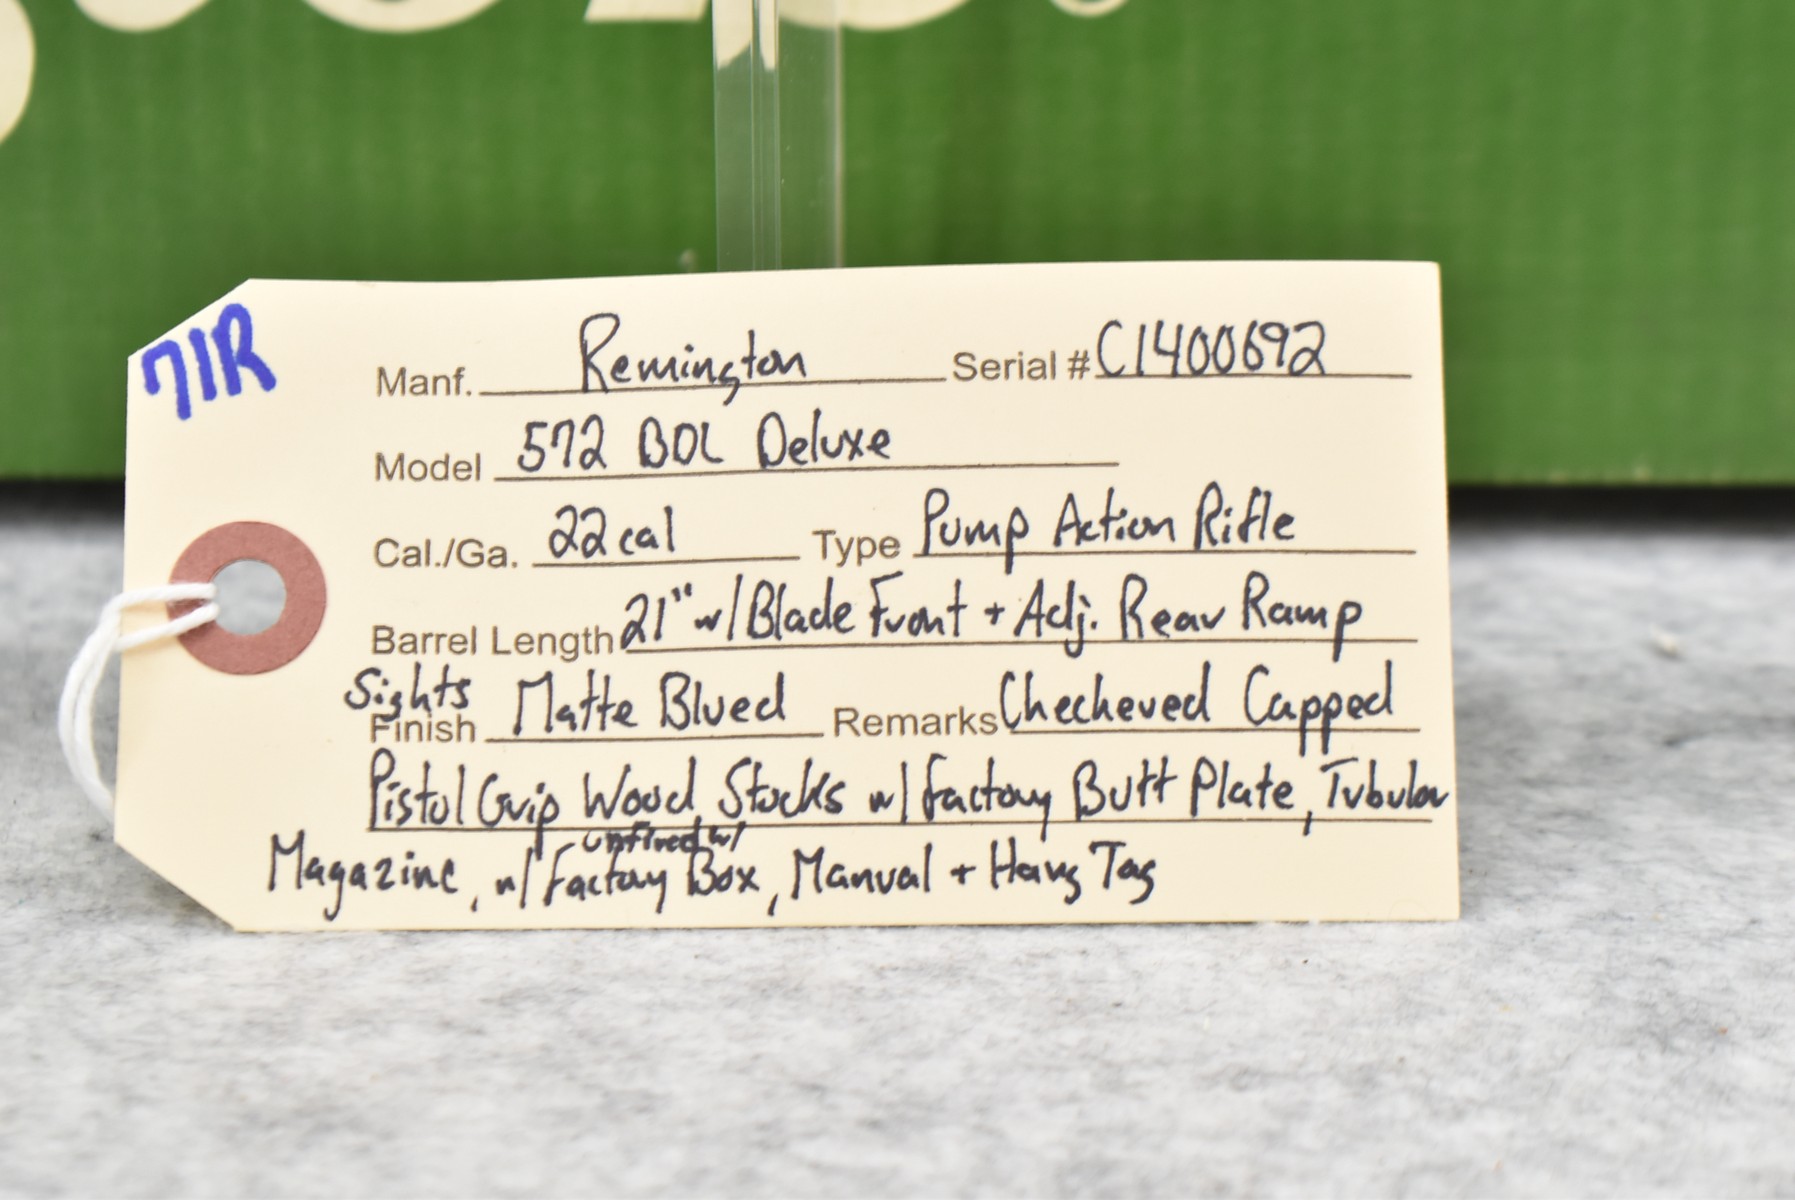 71R
Manf. Remington Serial # C1400692
Model 572 BDL Deluxe
Cal./Ga. 22 cal Type Pump Action Rifle
Barrel Length 21" w/ Blade Front + Adj. Rear Ramp
Sights
Finish Matte Blued Remarks Checkered Capped
Pistol Grip Wood Stocks w/ Factory Butt Plate, Tubular
unfired w/
Magazine, w/ Factory Box, Manual + Hang Tag